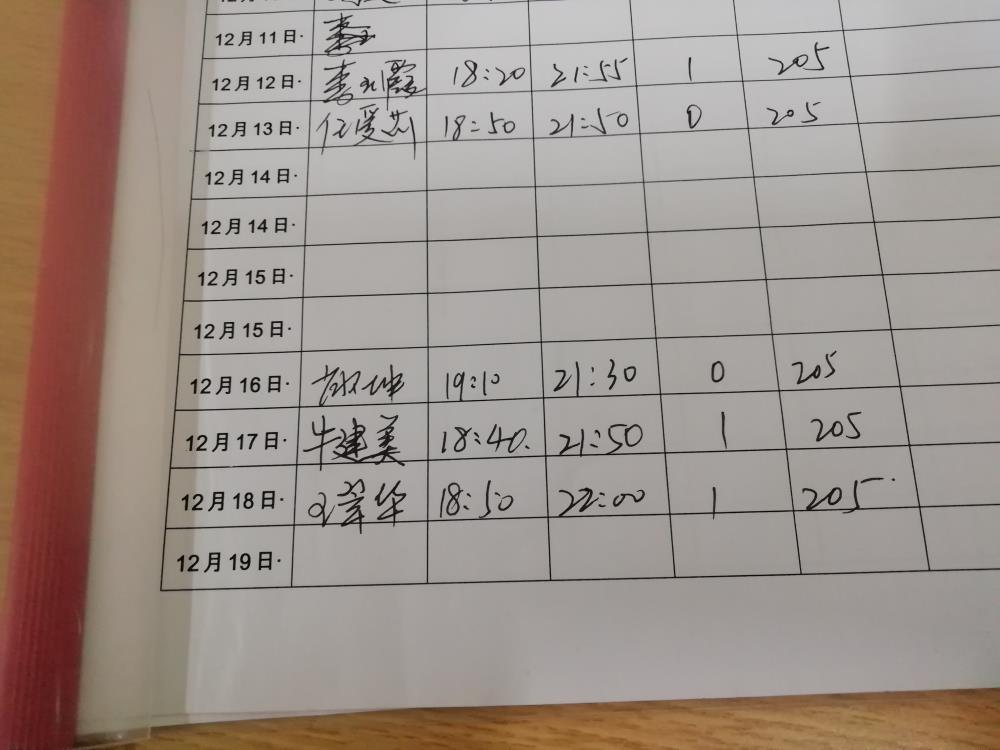 12月11日·
12月12日· 李永霞 18:20 21:55 1 205
12月13日· 任爱莉 18:50 21:50 0 205
12月14日·
12月14日·
12月15日·
12月15日·
12月16日· 19:10 21:30 0 205
12月17日· 牛建美 18:40. 21:50 1 205
12月18日· 王翠华 18:50 22:00 1 205
12月19日·